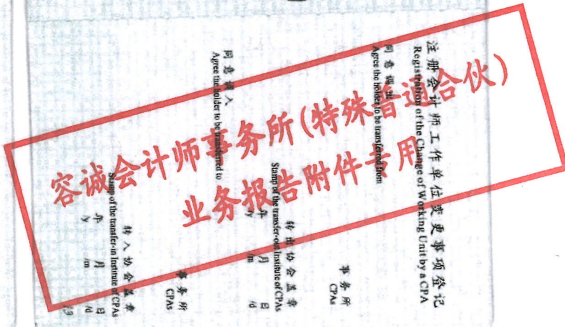 注册会计师工作单位变更事项登记
Registration of the Change of Working Unit by a CPA
同意调出
Agree the holder to be transferred from
事务所
CPAs
转出协会盖章
Stamp of the transfer-out Institute of CPAs
年 月 日
/y /m /d
同意调入
Agree the holder to be transferred to
事务所
CPAs
转入协会盖章
Stamp of the transfer-in Institute of CPAs
年 月 日
/y /m /d
容诚会计师事务所(特殊普通合伙)
业务报告附件专用